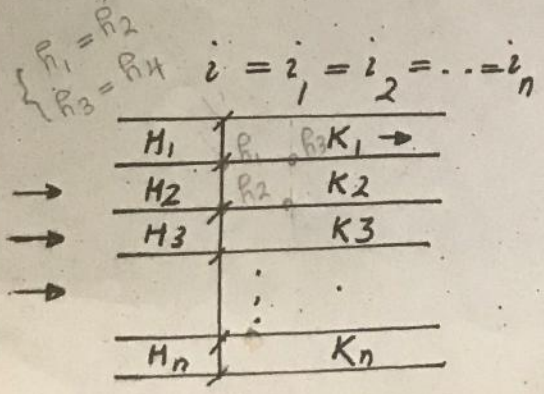 { h₁ = h₂
h₃ = h4
i = i₁ = i₂ = ... = iₙ
H₁ h₁ h₃ K₁ →
→ H2 h₂ K2
→ H3 K3
→ ⋮
Hₙ Kn